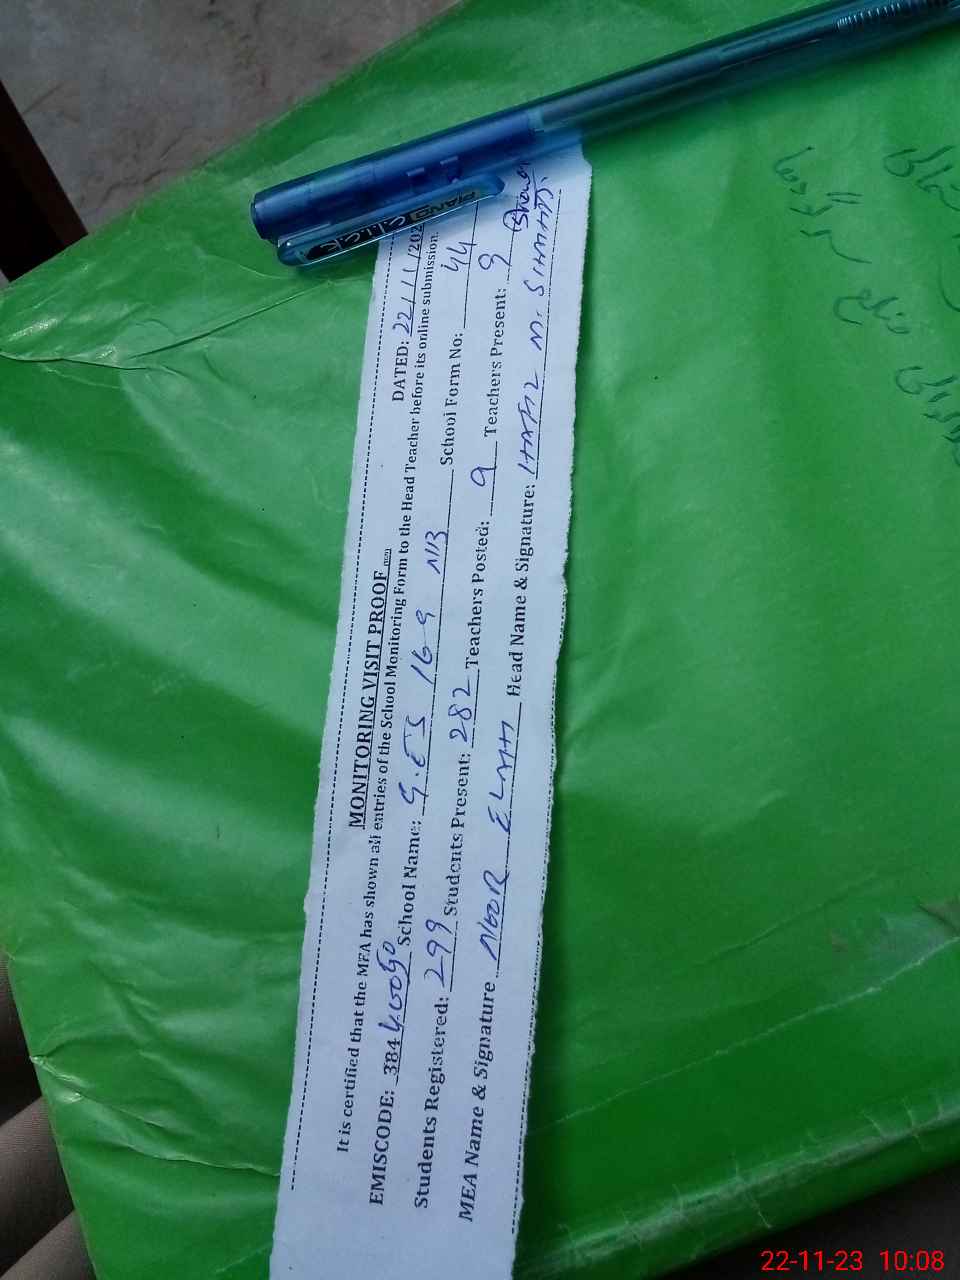 MONITORING VISIT PROOF
DATED: 22/11/202
It is certified that the MEA has shown all entries of the School Monitoring Form to the Head Teacher before its online submission.
EMISCODE: 384 School Name: G.ES 169 N/B School Form No: 44
Students Registered: 299 Students Present: 282 Teachers Posted: 9 Teachers Present: 9
MEA Name & Signature NOOR ELAHI Head Name & Signature: HAFIZ M.
PIANO CLICK
22-11-23 10:08